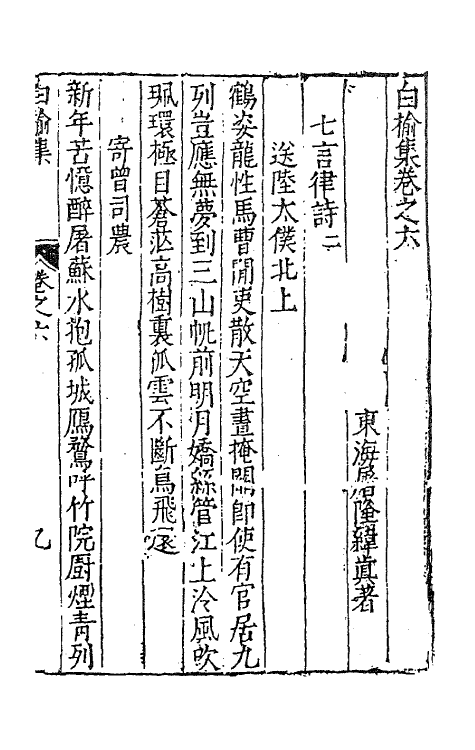 白榆集卷之六
東海屠隆緯眞著
七言律詩二
送陸太僕北上
鶴姿龍性馬曹閒吏散天空晝掩關卽使有官居九
列豈應無夢到三山帆前明月嬌絲管江上冷風吹
珮環極目蒼茫高樹裏孤雲不斷鳥飛還
寄曾司農
新年苦憶醉屠蘇水抱孤城鴈鶩呼竹院厨煙靑列
白榆集
卷之六
乙